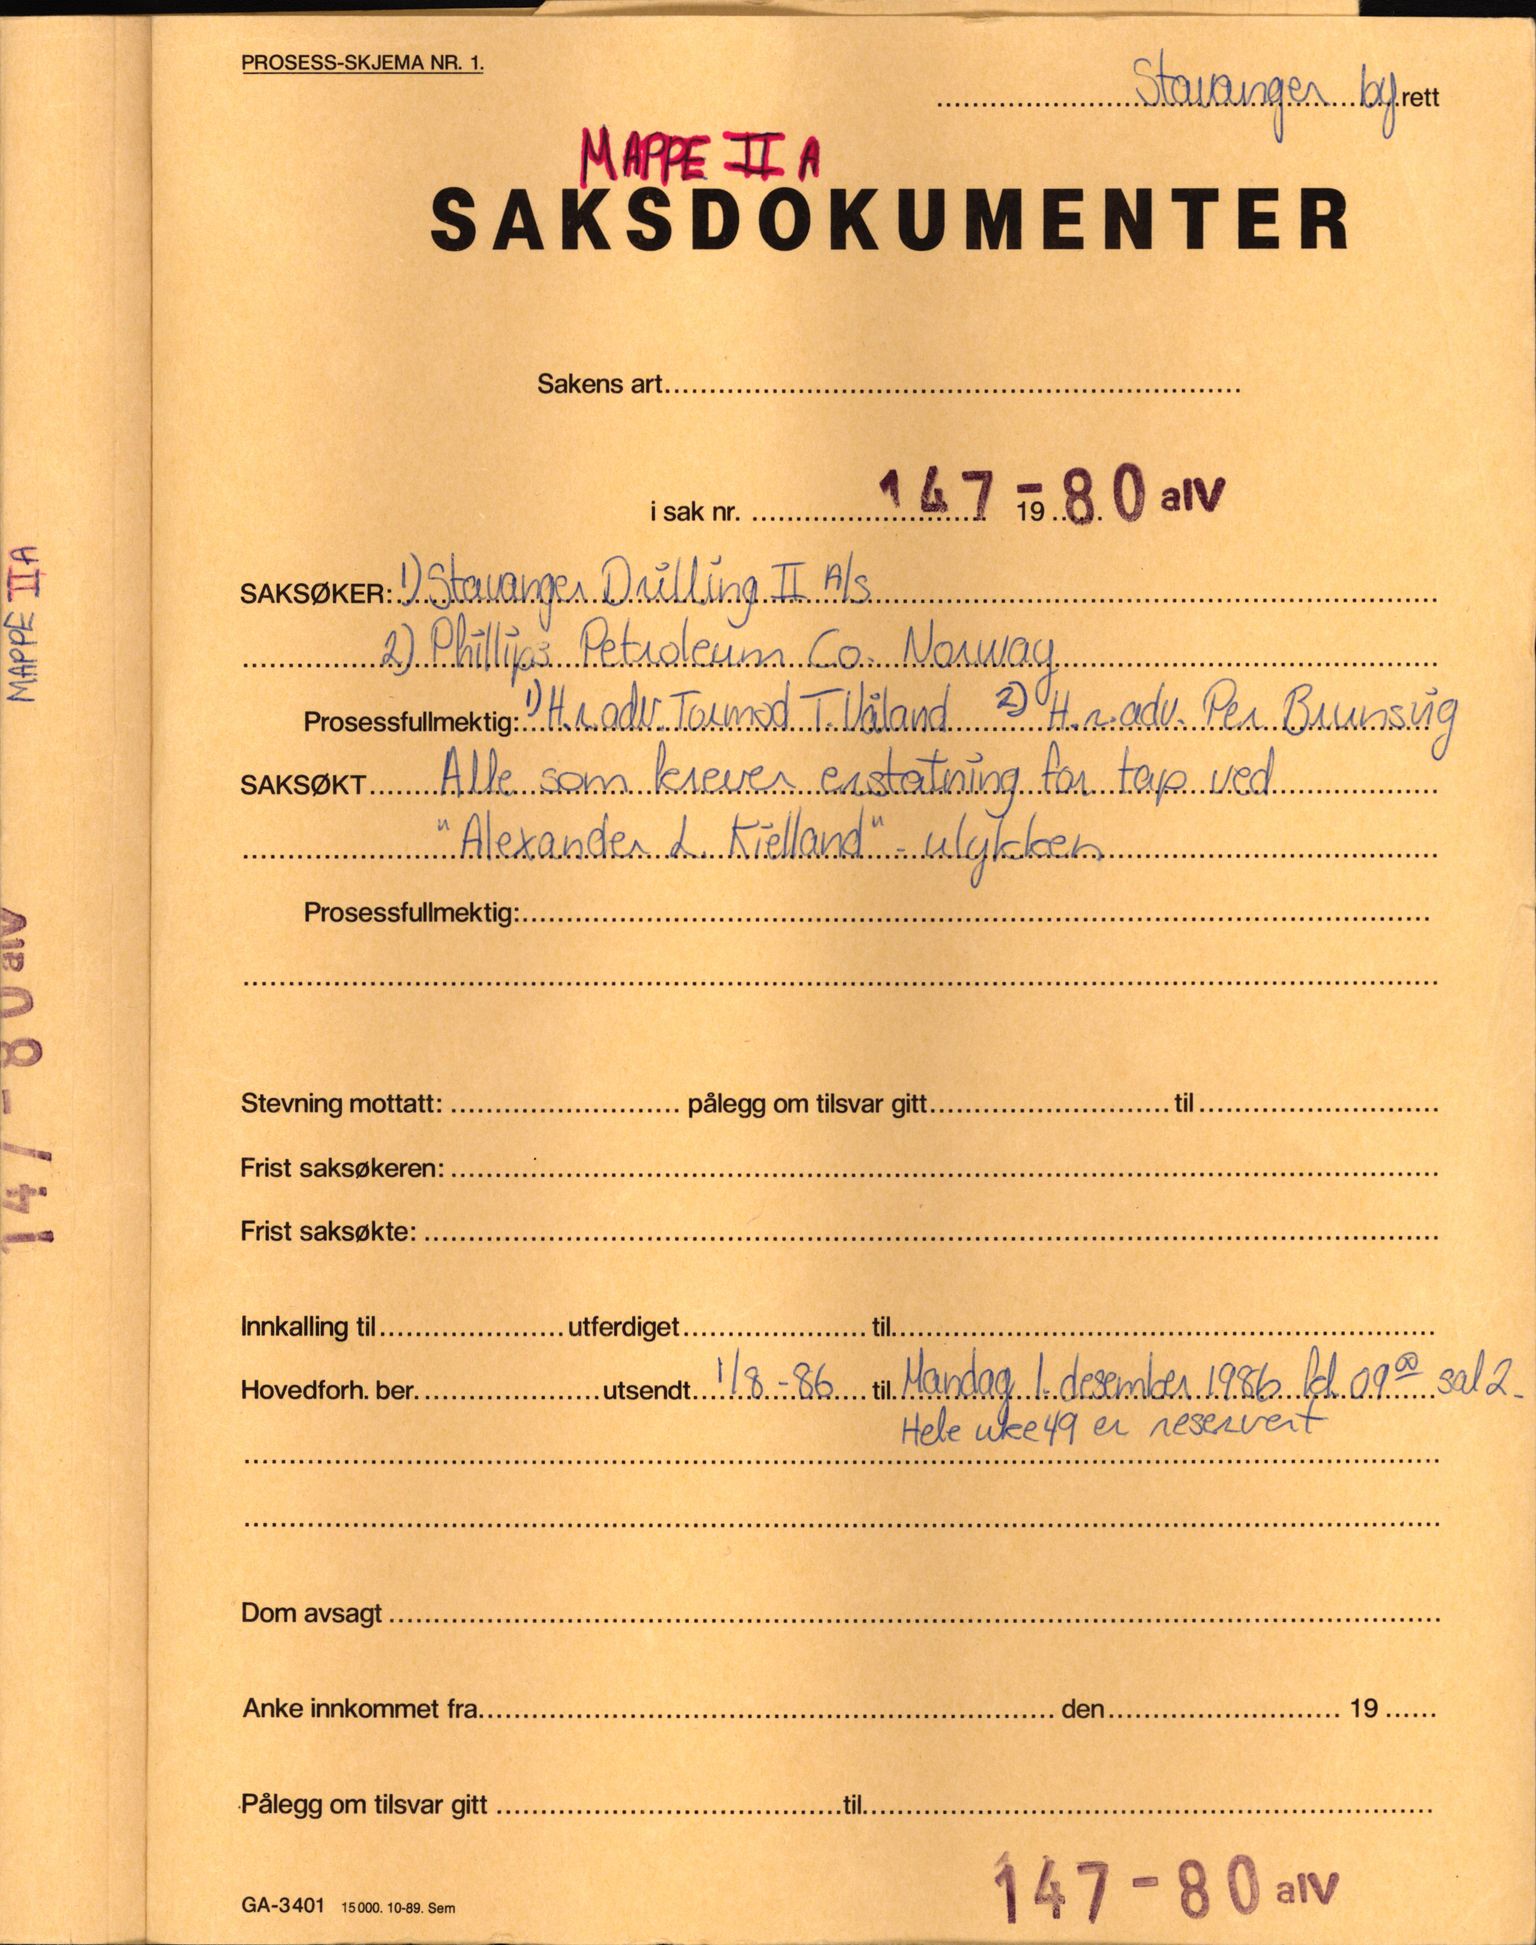 PROSESS-SKJEMA NR. 1.
Stavanger by rett
MAPPE II A
SAKSDOKUMENTER
Sakens art
i sak nr. 147 - 19 80 aIV
SAKSØKER: 1) Stavanger Drilling II A/S
2) Phillips Petroleum Co. Norway
Prosessfullmektig: 1) H.r.adv. Tormod T. Våland 2) H.r.adv. Per Brunsvig
SAKSØKT Alle som krever erstatning for tap ved
"Alexander L. Kielland" - ulykken
Prosessfullmektig:
Stevning mottatt: pålegg om tilsvar gitt til
Frist saksøkeren:
Frist saksøkte:
Innkalling til utferdiget til
Hovedforh. ber. utsendt 1/8 - 86 til Mandag 1. desember 1986 kl. 09 00 sal 2.
Hele uke 49 er reservert
Dom avsagt
Anke innkommet fra den 19
Pålegg om tilsvar gitt til
147 - 80 aIV
GA-3401 15000. 10-89. Sem
MAPPE II A
147 - 80 aIV